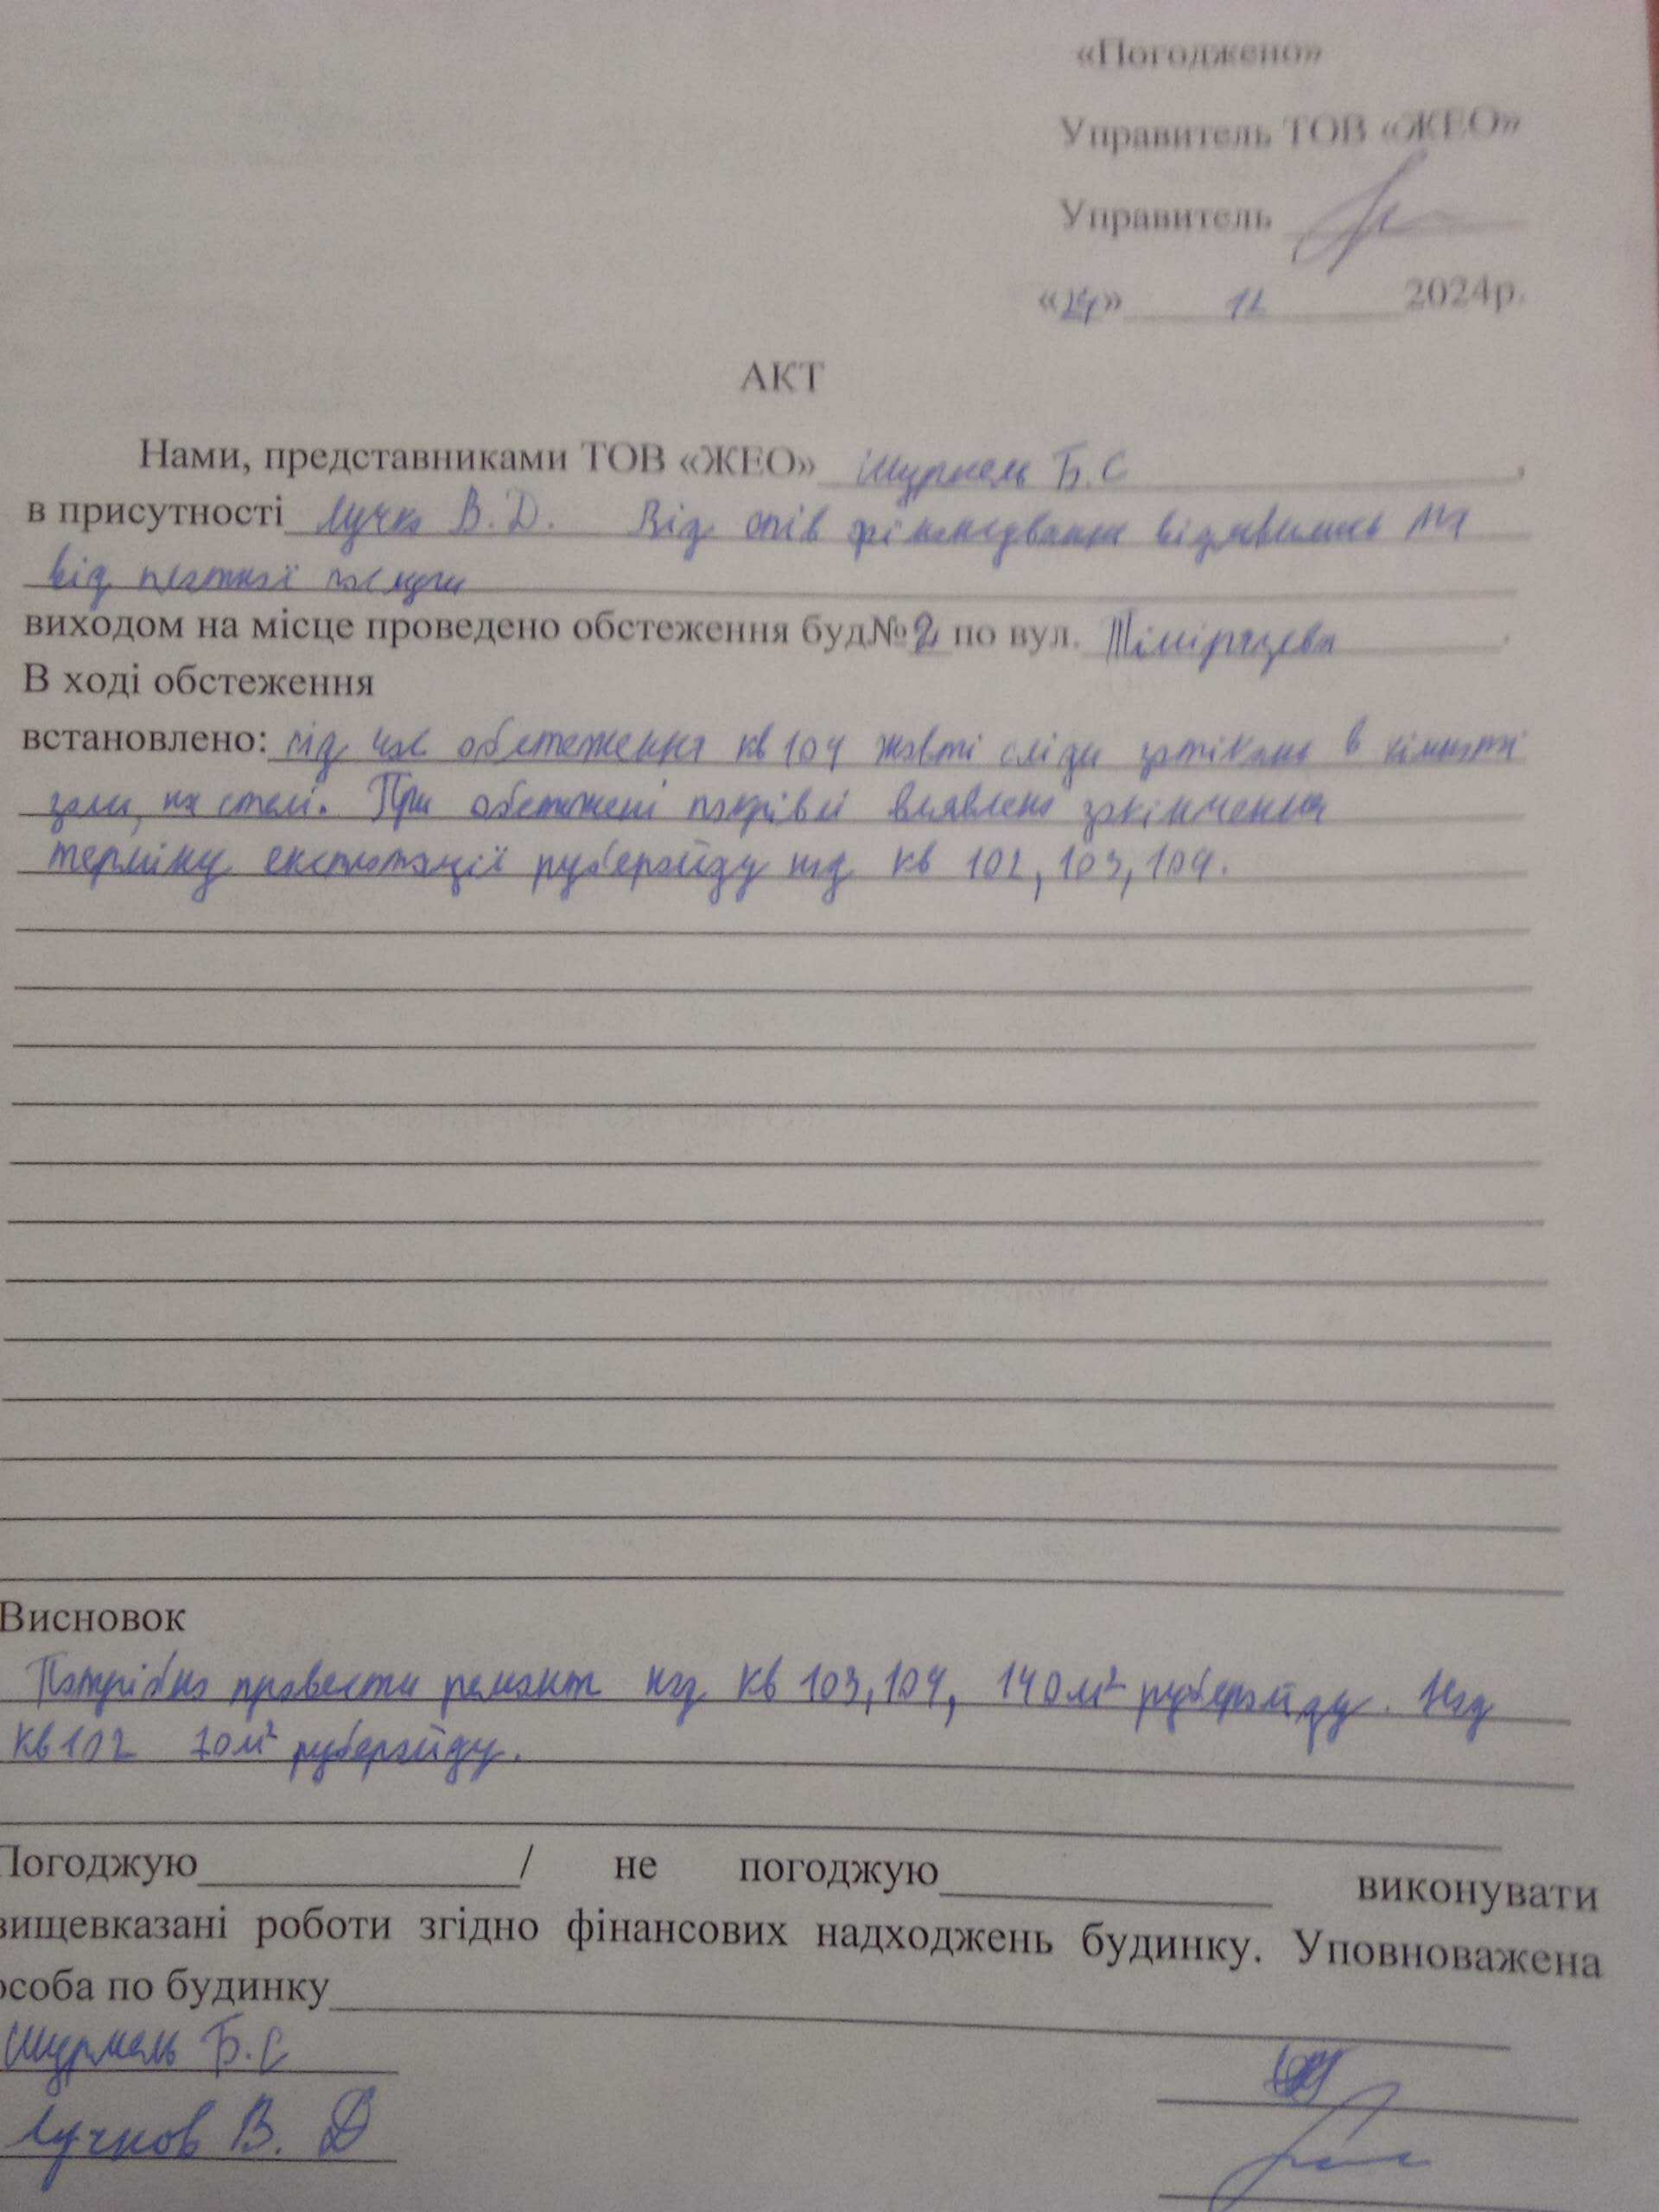 «Погоджено»
Управитель ТОВ «ЖЕО»
Управитель
«24» 12 2024р.
АКТ
Нами, представниками ТОВ «ЖЕО» Шурмель Б.С,
в присутності Лучко В.Д. Від спів фінансування відмовились
від платної послуги
виходом на місце проведено обстеження буд№2 по вул. Тімірязєва.
В ході обстеження
встановлено: під час обстеження кв 104 жовті сліди затікань в кімнаті
зали, на стелі. При обстежені покрівлі виявлено закінчення
терміну експлотації рубероїду над кв 102, 103, 104.
Висновок
Потрібно провести ремонт над кв 103, 104, 140м² рубероїду. Над
кв 102 70м² рубероїду.
Погоджую / не погоджую виконувати
вищевказані роботи згідно фінансових надходжень будинку. Уповноважена
особа по будинку
Шурмель Б.С
Лучков В. Д